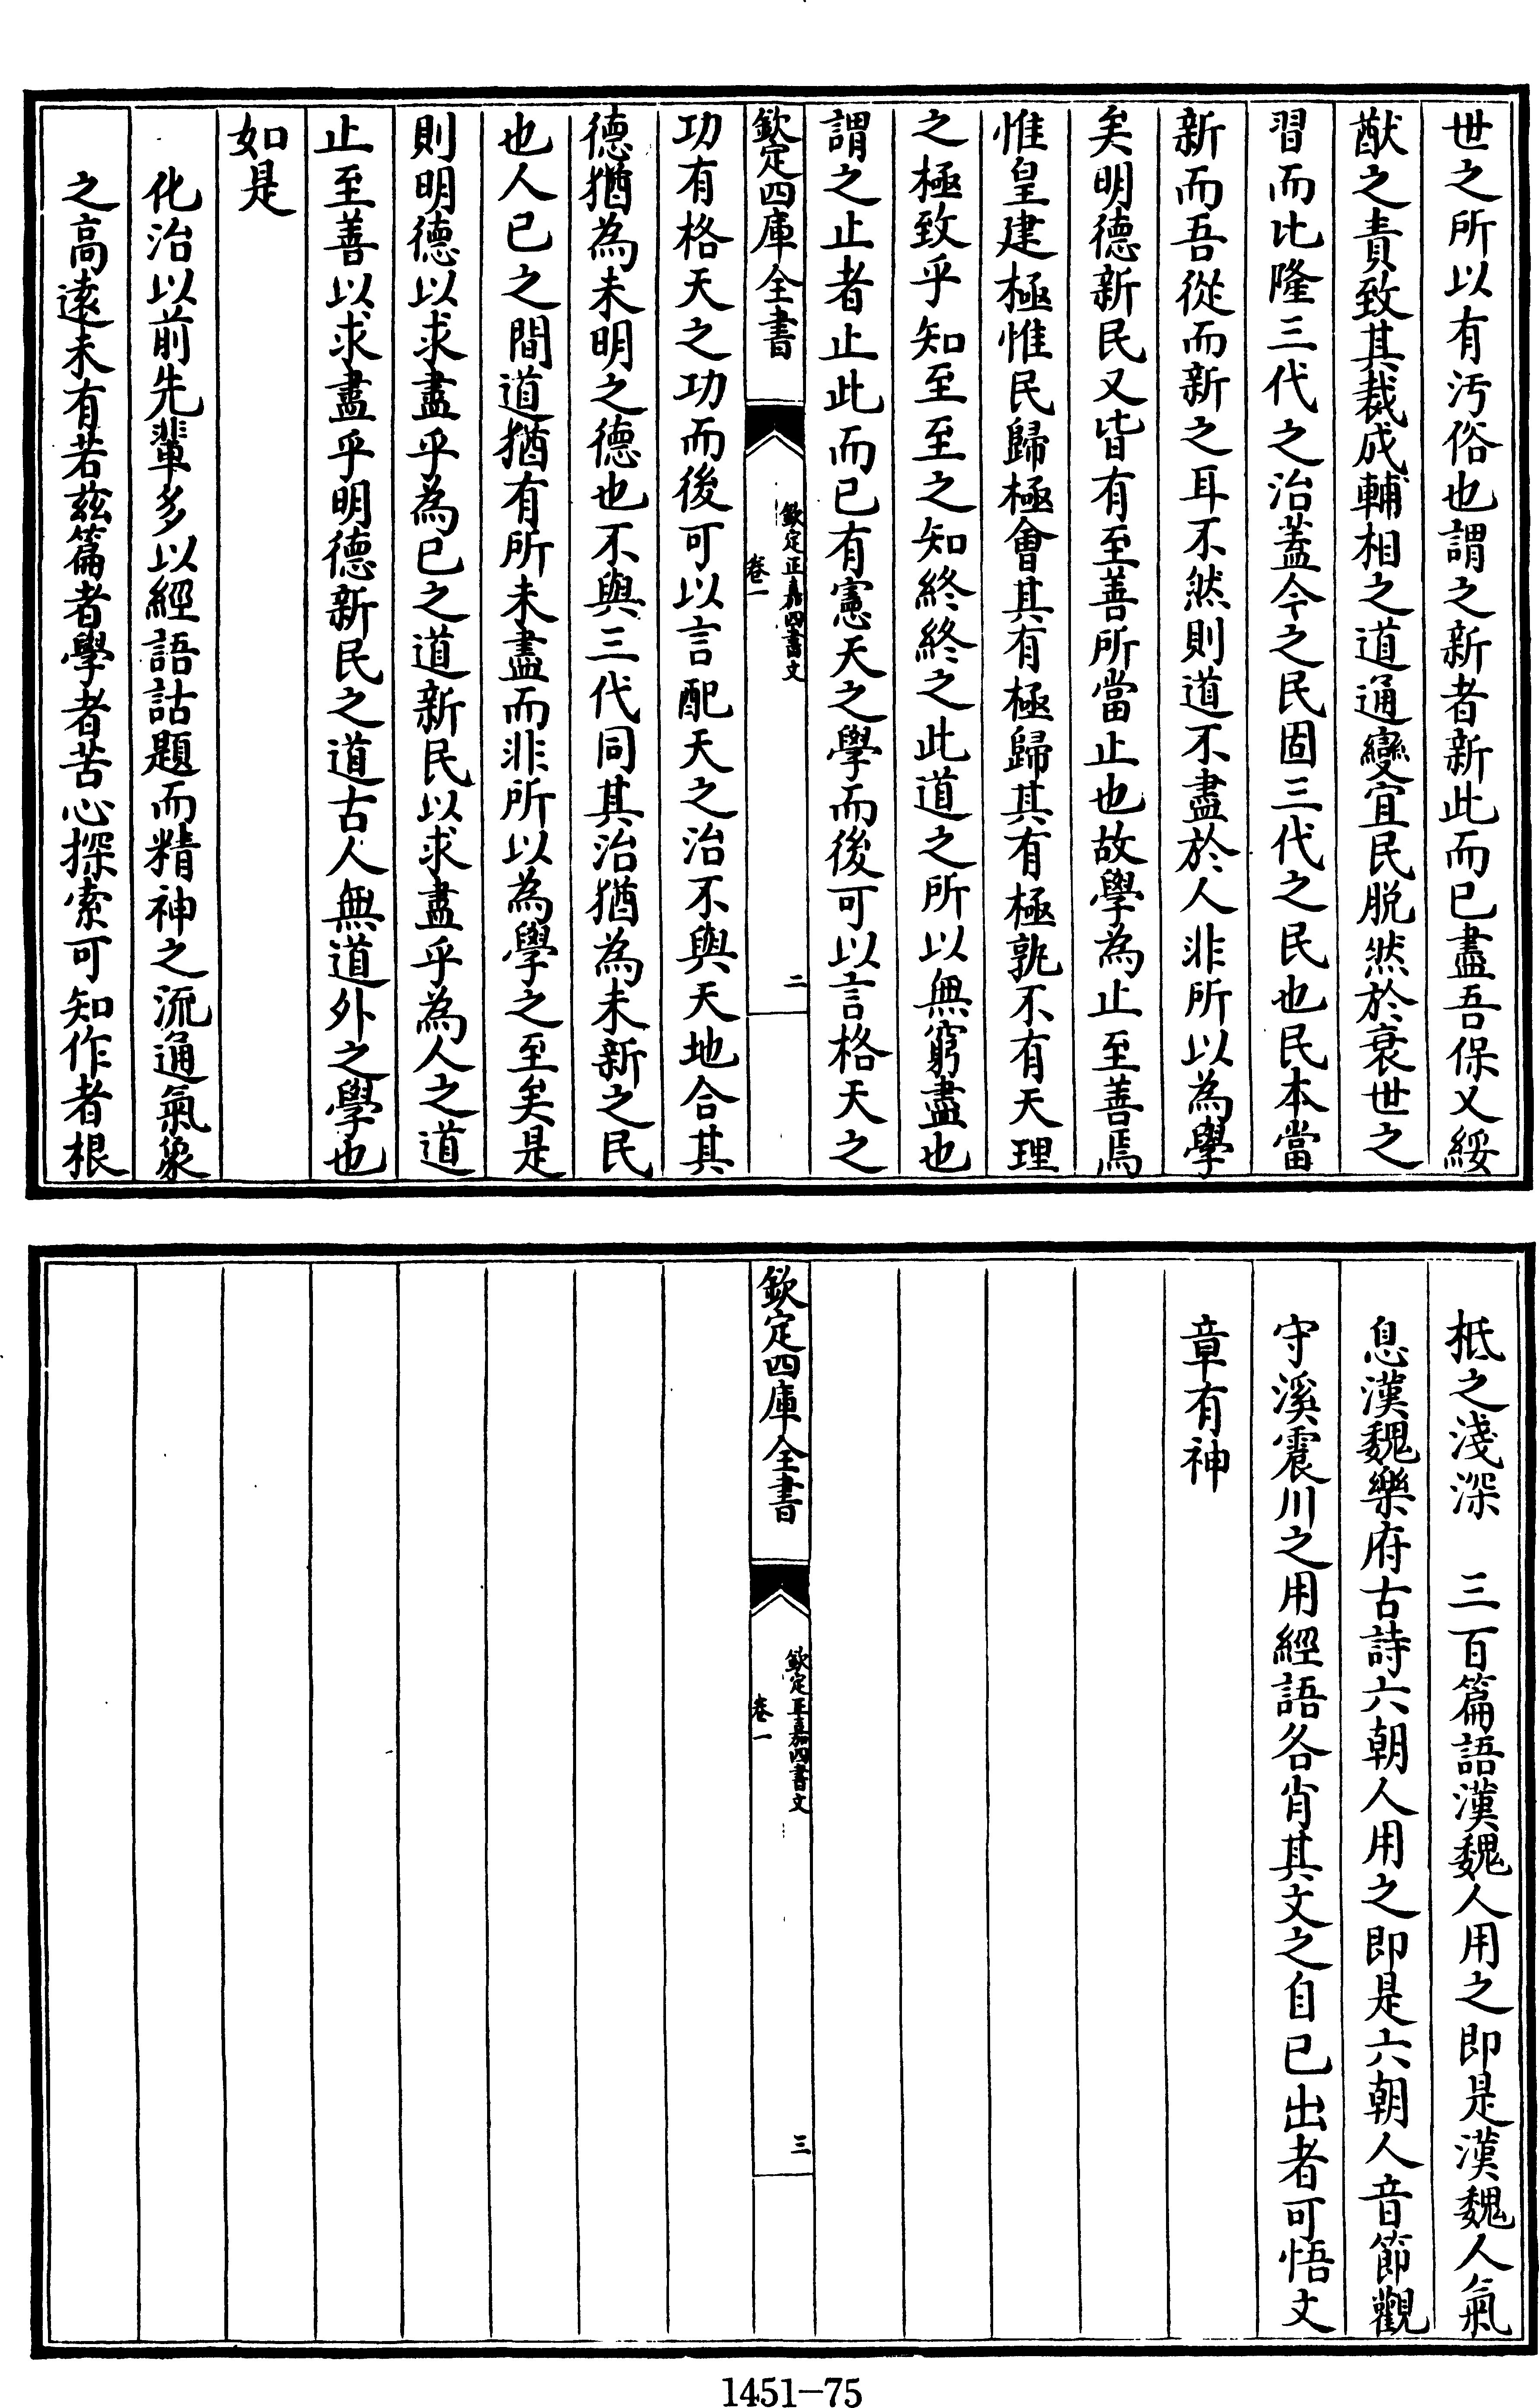 世之所以有汚俗也謂之新者新此而已盡吾保乂綏
猷之責致其裁成輔相之道通變宜民脱然於衰世之
習而比隆三代之治蓋今之民固三代之民也民本當
新而吾從而新之耳不然則道不盡於人非所以為學
矣明德新民又皆有至善所當止也故學為止至善焉
惟皇建極惟民歸極會其有極歸其有極孰不有天理
之極致乎知至至之知終終之此道之所以無窮盡也
謂之止者止此而已有憲天之學而後可以言格天之
欽定四庫全書
欽定正嘉四書文
卷一
二
功有格天之功而後可以言配天之治不與天地合其
德猶為未明之德也不與三代同其治猶為未新之民
也人已之間道猶有所未盡而非所以為學之至矣是
則明德以求盡乎為已之道新民以求盡乎為人之道
止至善以求盡乎明德新民之道古人無道外之學也
如是
化治以前先輩多以經語詁題而精神之流通氣象
之高遠未有若茲篇者學者苦心探索可知作者根
柢之淺深　三百篇語漢魏人用之即是漢魏人氣
息漢魏樂府古詩六朝人用之即是六朝人音節觀
守溪震川之用經語各肖其文之自已出者可悟文
章有神
欽定四庫全書
欽定正嘉四書文
卷一
三
1451-75